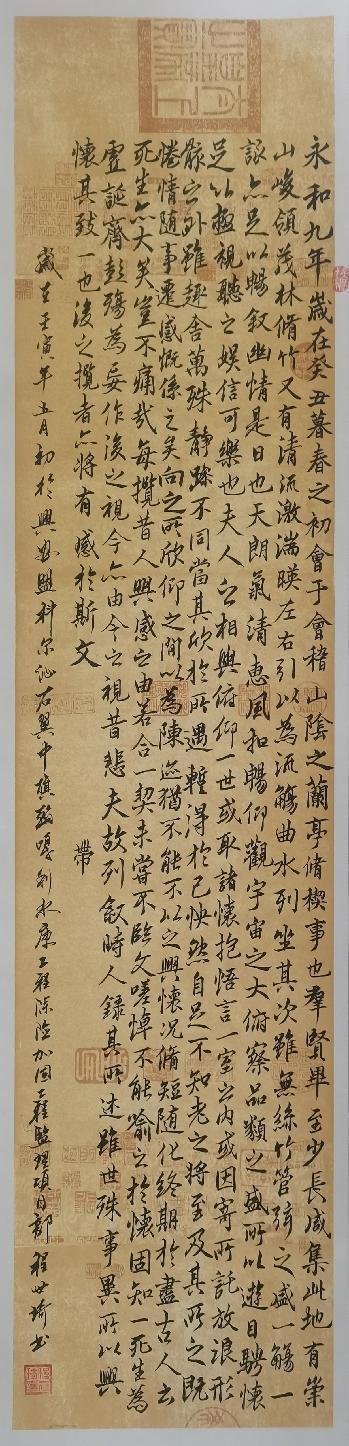 永和九年歲在癸丑暮春之初會于會稽山陰之蘭亭脩稧事也羣賢畢至少長咸集此地有崇
山峻領茂林脩竹又有清流激湍暎左右引以為流觴曲水列坐其次雖無絲竹管弦之盛一觴一
詠亦足以暢敘幽情是日也天朗氣清惠風和暢仰觀宇宙之大俯察品類之盛所以遊目騁懷
足以極視聽之娛信可樂也夫人之相與俯仰一世或取諸懷抱悟言一室之內或因寄所託放浪形
骸之外雖趣舍萬殊靜躁不同當其欣於所遇輕得於己怏然自足不知老之將至及其所之既
惓情隨事遷感慨係之矣向之所欣仰之間以為陳迹猶不能不以之興懷况脩短隨化終期於盡古人云
死生亦大矣豈不痛哉每攬昔人興感之由若合一契未嘗不臨文嗟悼不能喻之於懷固知一死生為
虛誕齊彭殤為妄作後之視今亦由今之視昔悲夫故列敘時人錄其所述雖世殊事異所以興
懷其致一也後之攬者亦將有感於斯文 帶
歲在壬寅年五月初於興安盟科尔沁右翼中旗嘎利水庫工程除險加固工程監理項目部 程世琦书